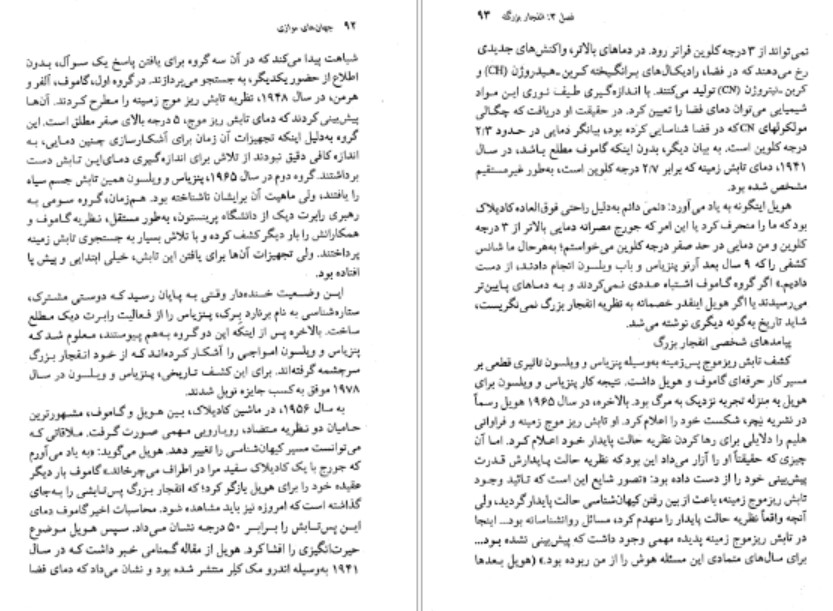 ۹۲ جهان‌های موازی
شباهت پیدا می‌کند که در آن سه گروه برای یافتن پاسخ یک سوآل، بدون
اطلاع از حضور یکدیگر، به جستجو می‌پردازند. در گروه اول، گاموف، آلفر و
هرمن، در سال ۱۹۴۸، نظریه تابش ریز موج زمینه را مطرح کردند. آن‌ها
پیش‌بینی کردند که دمای تابش ریز موج، ۵ درجه بالای صفر مطلق است. این
گروه به‌دلیل اینکه تجهیزات آن زمان برای آشکارسازی چنین دمایی، به
اندازه کافی دقیق نبودند از تلاش برای اندازه‌گیری دمای‌این تابش دست
برداشتند. گروه دوم در سال ۱۹۶۵، پنزیاس و ویلسون همین تابش جسم سیاه
را یافتند، ولی ماهیت آن برایشان ناشناخته بود. هم‌زمان، گروه سومی به
رهبری رابرت دیک از دانشگاه پرینستون، به‌طور مستقل، نظریه گاموف و
همکارانش را بار دیگر کشف کرده و با تلاش بسیار به جستجوی تابش زمینه
پرداختند. ولی تجهیزات آن‌ها برای یافتن این تابش، خیلی ابتدایی و پیش پا
افتاده بود.
این وضعیت خنده‌دار وقتی به پایان رسید که دوستی مشترک،
ستاره‌شناسی به نام برنارد پرک، پنزیاس را از فعالیت رابرت دیک مطلع
ساخت. بالاخره پس از اینکه این دو گروه به‌هم پیوستند، معلوم شد که
پنزیاس و ویلسون امواجی را آشکار کرده‌اند که از خود انفجار بزرگ
سرچشمه گرفته‌اند. برای این کشف تاریخی، پنزیاس و ویلسون در سال
۱۹۷۸ موفق به‌کسب جایزه نوبل شدند.
به سال ۱۹۵۶، در ماشین کادیلاک، بین هویل و گاموف، مشهورترین
حامیان دو نظریه متضاد، رویارویی مهمی صورت گرفت. ملاقاتی که
می‌توانست مسیر کیهان‌شناسی را تغییر دهد. هویل می‌گوید: «به یاد می‌آورم
که جورج با یک کادیلاک سفید مرا در اطراف می‌چرخاند.» گاموف بار دیگر
عقیده خود را برای هویل بازگو کرد؛ که انفجار بزرگ پس‌تابشی را به‌جای
گذاشته است که امروزه نیز باید مشاهده شود. محاسبات اخیر گاموف دمای
این پس‌تابش را برابر ۵۰ درجه نشان می‌داد. سپس هویل موضوع
حیرت‌انگیزی را افشا کرد. هویل از مقاله گمنامی خبر داشت که در سال
۱۹۴۱ به‌وسیله اندرو مک کلر منتشر شده بود و نشان می‌داد که دمای فضا
فصل ۳: انفجار بزرگ ۹۳
نمی‌تواند از ۳ درجه کلوین فراتر رود. در دماهای بالاتر، واکنش‌های جدیدی
رخ می‌دهند که در فضا، رادیکال‌های برانگیخته کربن-هیدروژن (CH) و
کربن-نیتروژن (CN) تولید می‌کنند. با اندازه‌گیری طیف نوری این مواد
شیمیایی می‌توان دمای فضا را تعیین کرد. در حقیقت او دریافت که چگالی
مولکولهای CN که در فضا شناسایی کرده بود، بیانگر دمایی در حدود ۲/۳
درجه کلوین است. به بیان دیگر، بدون اینکه گاموف مطلع باشد، در سال
۱۹۴۱، دمای تابش زمینه که برابر ۲/۷ درجه کلوین است، به‌طور غیرمستقیم
مشخص شده بود.
هویل اینگونه به یاد می‌آورد: «نمی دانم به‌دلیل راحتی فوق‌العاده کادیلاک
بود که ما را منحرف کرد یا این امر که جورج مصرانه دمایی بالاتر از ۳ درجه
کلوین و من دمایی در حد صفر درجه کلوین می‌خواستم؛ به‌هرحال ما شانس
کشفی را که ۹ سال بعد آرنو پنزیاس و باب ویلسون انجام دادند، از دست
دادیم.» اگر گروه گاموف اشتباه عددی نمی‌کردند و به دماهای پایین‌تر
می‌رسیدند یا اگر هویل اینقدر خصمانه به نظریه انفجار بزرگ نمی‌نگریست،
شاید تاریخ به‌گونه دیگری نوشته می‌شد.
پیامدهای شخصی انفجار بزرگ
کشف تابش ریزموج پس‌زمینه به‌وسیله پنزیاس و ویلسون تاثیری قطعی بر
مسیر کار حرفه‌ای گاموف و هویل داشت. نتیجه کار پنزیاس و ویلسون برای
هویل به منزله تجربه نزدیک به مرگ بود. بالاخره، در سال ۱۹۶۵ هویل رسماً
در نشریه نیچر، شکست خود را اعلام کرد. او تابش ریز موج زمینه و فراوانی
هلیم را دلایلی برای رها کردن نظریه حالت پایدار خود اعلام کرد. اما آن
چیزی که حقیقتاً او را آزار می‌داد این بود که نظریه حالت پایدارش قدرت
پیش‌بینی خود را از دست داده بود: «تصور شایع این است که تائید وجود
تابش ریزموج زمینه، باعث از بین رفتن کیهان‌شناسی حالت پایدار گردید، ولی
آنچه واقعاً نظریه حالت پایدار را منهدم کرد، مسائل روانشناسانه بود... اینجا
در تابش ریزموج زمینه پدیده مهمی وجود داشت که پیش‌بینی نشده بود...
برای سال‌های متمادی این مسئله هوش را از من ربوده بود.» (هویل بعدها